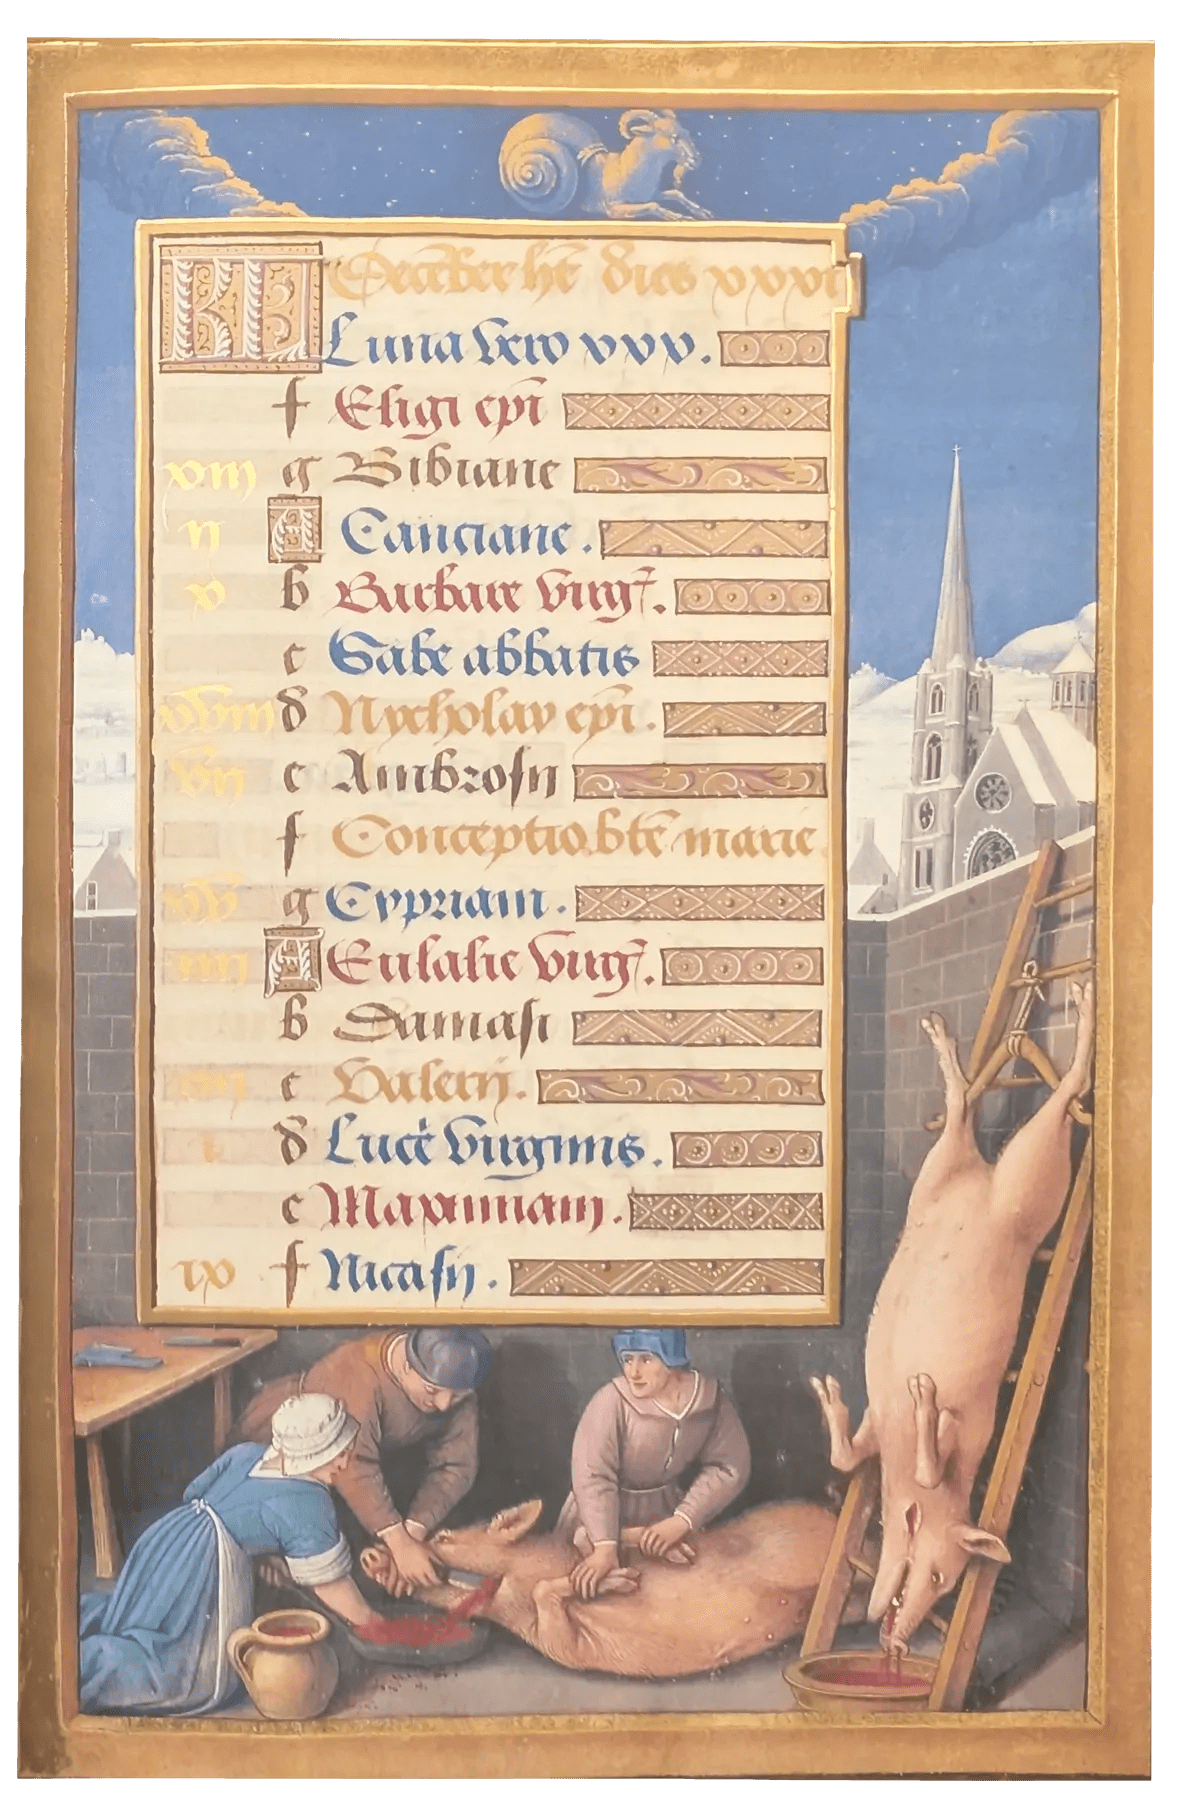 KL Decēber hēt dies xxxi
Luna vero xxx.
f Eligi epī
xiii g Bibiane
ii A Canciane.
x b Barbare virgͥ.
c Sabe abbatis
xviii d Nycholay epī.
vii e Ambrosii
f Conceptio bte marie
xv g Cypriani.
iiii A Eulalie virgͥ.
b Damasi
xii c Valerii.
i d Lucē virginis.
e Maximiani.
ix f Nicasii.